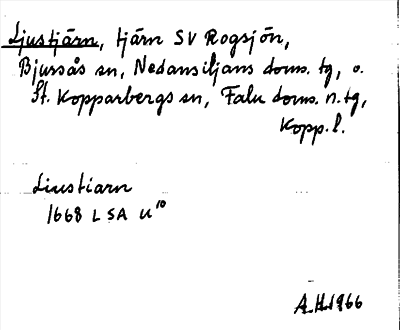 Ljustjärn, tjärn SV Rogsjön,
Bjursås sn, Nedansiljans doms. tg, o.
St. Kopparbergs sn, Falu doms. n. tg,
Kopp. l.
Liustiarn
1668 LSA U¹⁰
A.H. 1966